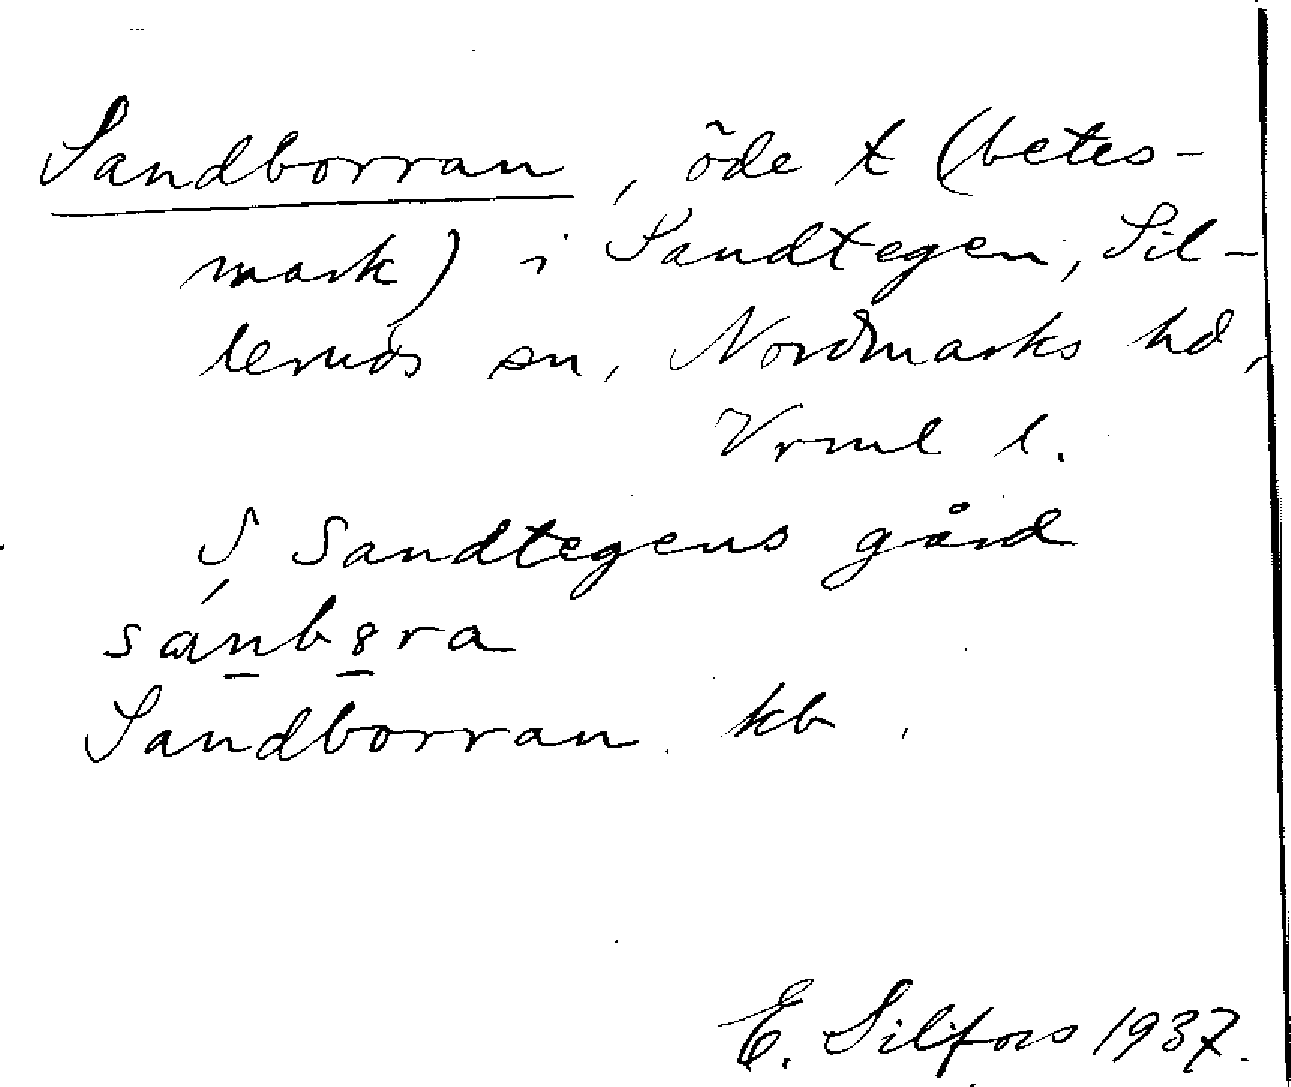 Sandborran, öde t (betes-
mark) i Sandtegen, Sil-
leruds sn, Nordmarks hd,
Vrml l.
S Sandtegens gård
sánb8ra
Sandborran kb.
E. Silfors 1937.